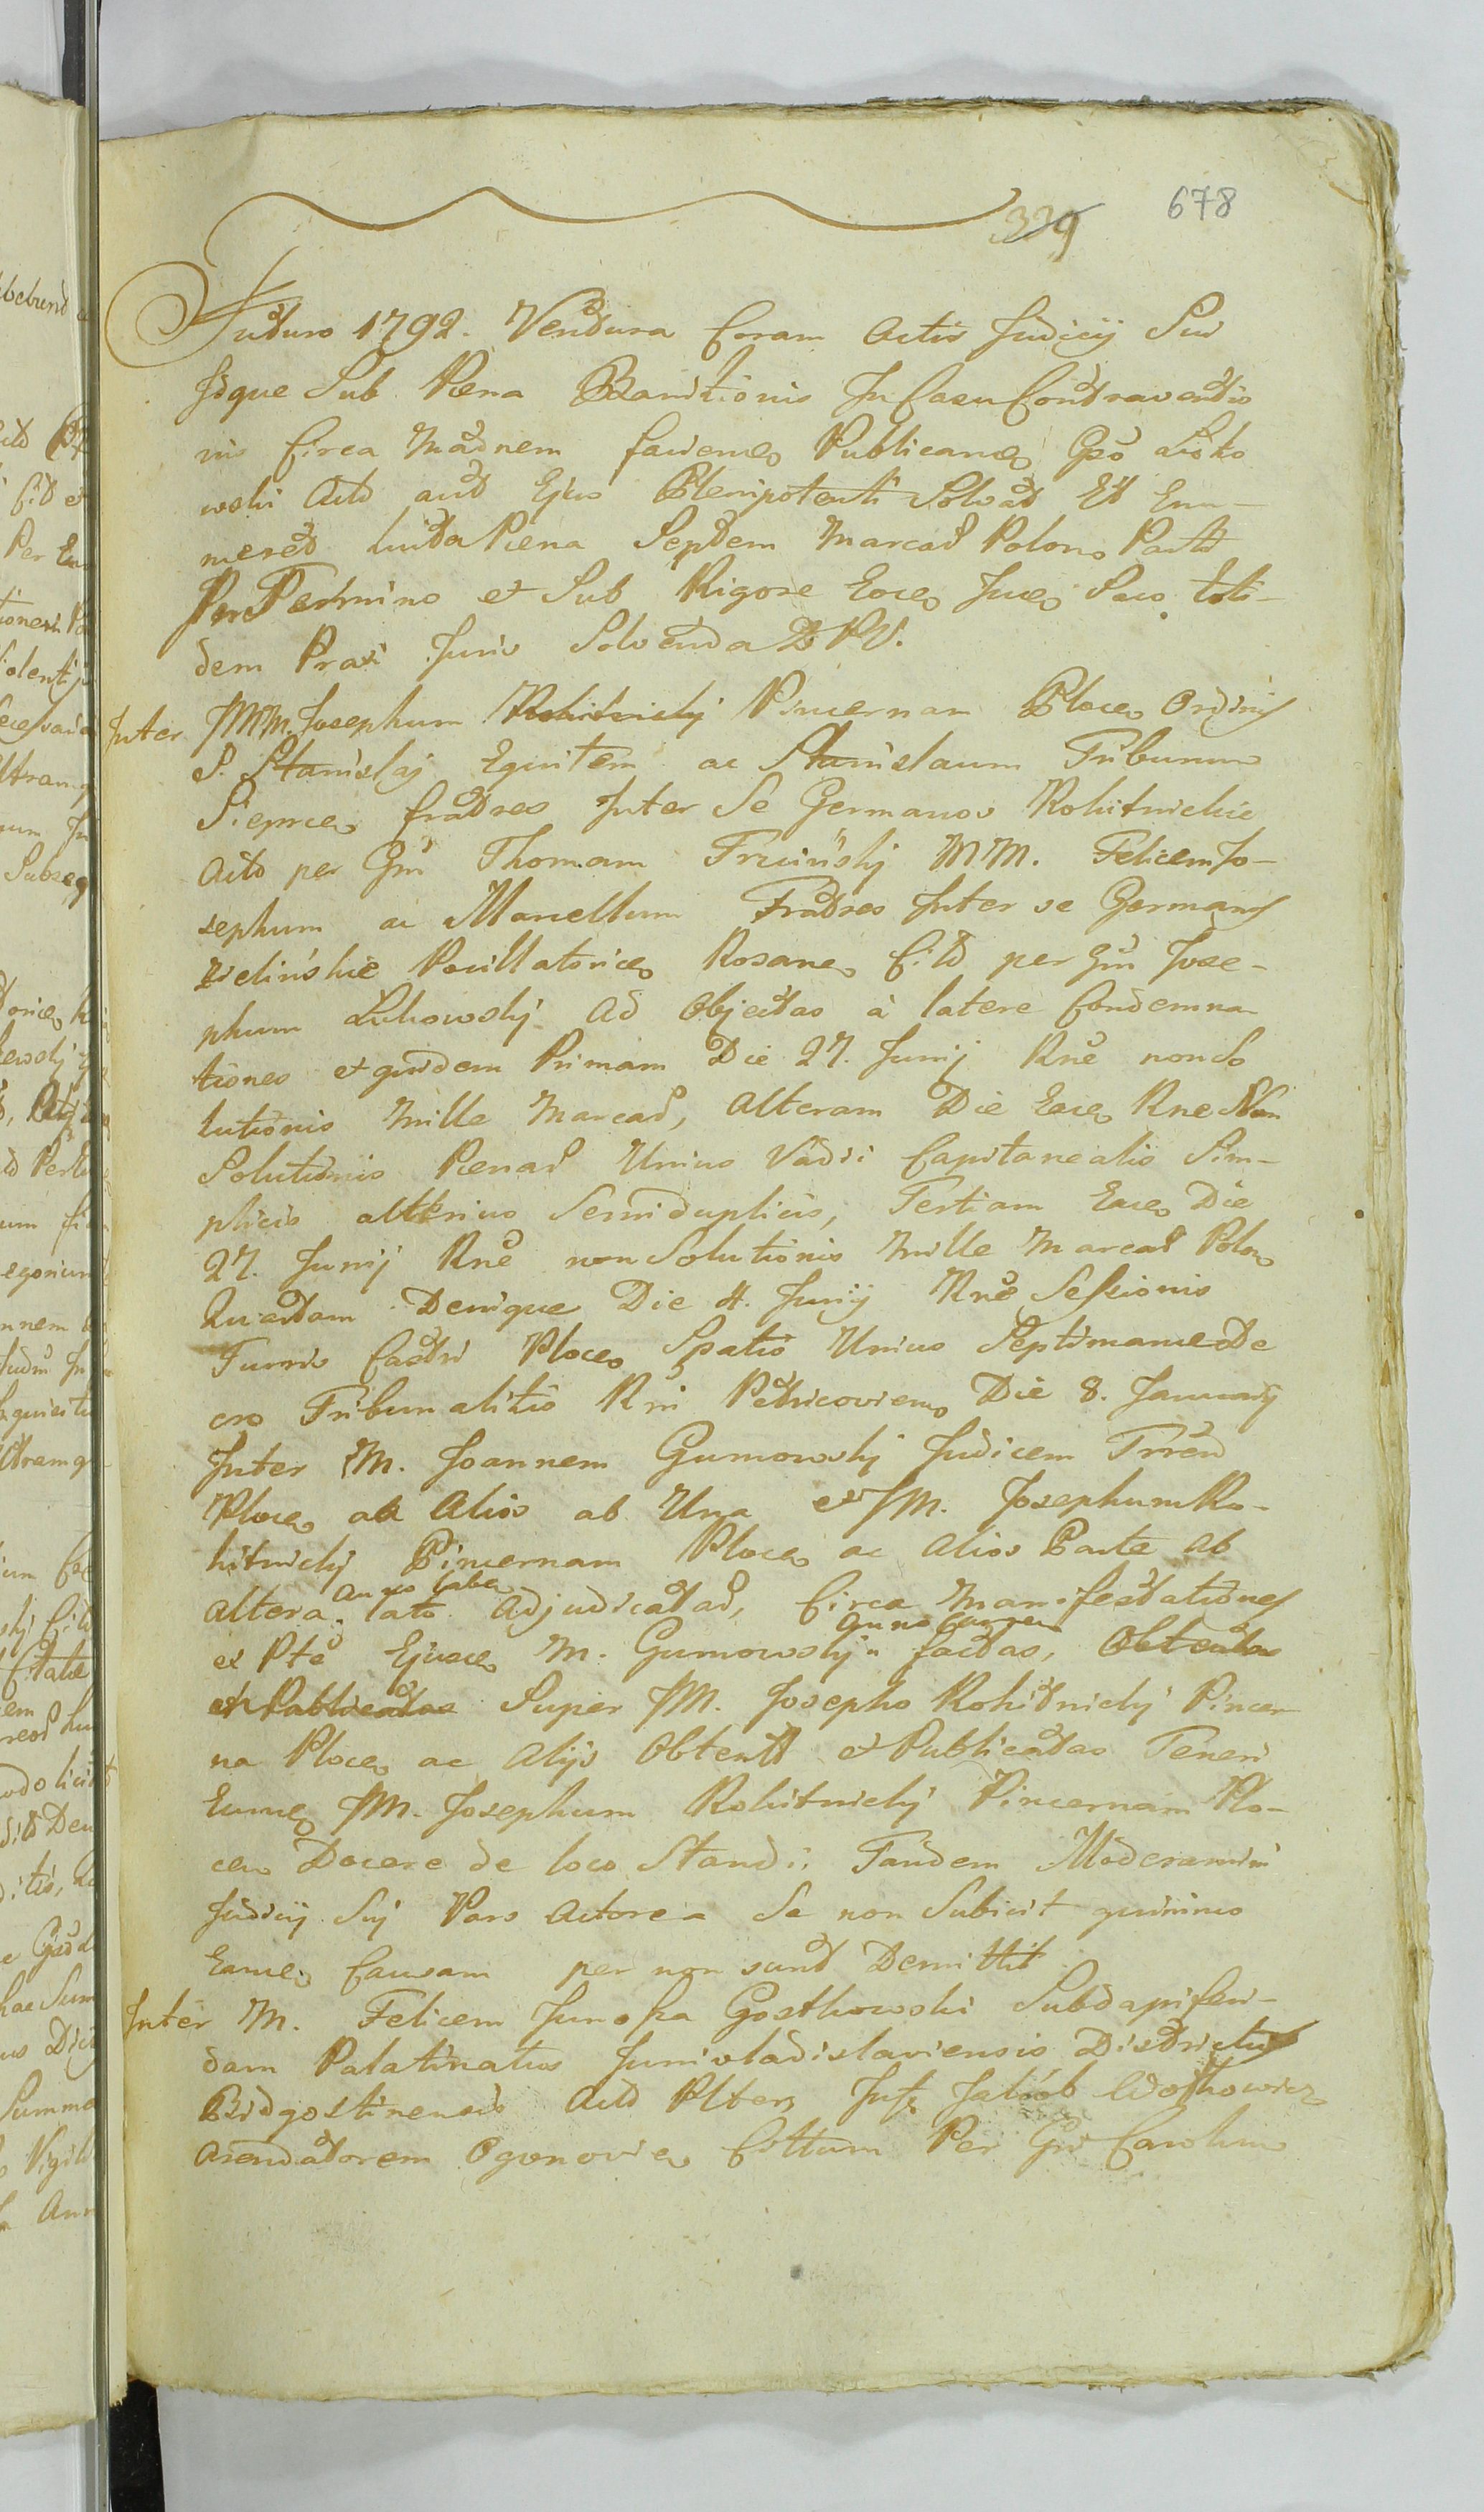 339 678
Futuro 1792. Ventura Coram Actis Judicij Sui
Idque Sub Pena Banitionis In Casu Contraventio
nis Circa Madnem facienes Publicanes Gso Lisko
wski Acto aut Ejus Plenipotenti Solvat Et Enu-
meret luita Pena Septem Marcas Polon. Parti
Pro Termino et Sub Rigore Eoces Juces Suo toti-
dem Praxi Juris Solvenda DPV.
Inter MM. Josephum Rokitnickj Pincernam Ploces Ordinis
S. Stanislaj Equitem ac Stanislaum Tribunum
Sieprces fratres Inter Se Germanos Rokitnickie
Acto per Gm Thomam Trzcińskj MM. Felicem Jo-
sephum ac Marcellum Fratres Inter se Germanos
Zielińskie Pocillatorices Rosanes Citt per Gm Jose-
phum Lukowskj Ad Objectas à latere Condemna
tiones et quidem Primam Die 27. Junij Rne nonSo
lutionis Mille Marcas, Alteram Die Eaces Rne Non
Solutionis Penas Unius Vadii Capitanealis Sim-
plicis alterius Semiduplicis, Tertiam Eaces Die
27. Junij Rne non Solutionis Mille Marcas Polon
Quartam Denique Die 4. Junij Rne Sessionis
Turris Castri Ploces Spatio Unius Septimanae De
cro Tribunalitio Rni Petricovien Die 8. Januarij
Inter M. Joannem Gumowskj Judicem Trren
Ploces ac Alios ab Una et M. Josephum Ro-
kitnickj Pincernam Ploces ac Alios Parte Ab
Anno
Altera lato Adjudicatas, Circa Manifestationes
Anno Curren
ex Pte Ejuces M. Gumowskj factas, Obtentas
et Publicatas Super M. Josepho Rokitnickj Pincer
na Ploces ac Alijs Obtentt et Publicatas Teneri
Eumes M. Josephum Rokitnickj Pincernam Plo-
cen Docere de loco Standi. Tandem Moderamini
Judicij Suj Pars Actorea Se non Subicit quinimo
Eames Causam per non sunt Demittit
Inter M. Felicem Junosza Gostkowski Subdapiferi-
dam Palatinatus Junivladislaviensis Districtus
Bidgostinensis Acto Plter Jakob
Arendatorem Ogonovies Cittum Per Gm Carolum